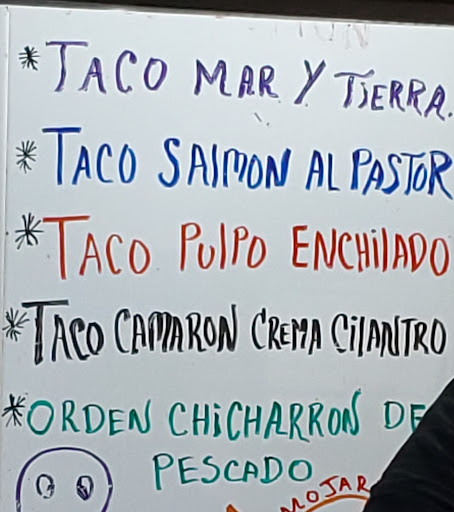 * TACO MAR Y TIERRA.
* TACO SALMON AL PASTOR
* TACO PULPO ENCHILADO
* TACO CAMARON CREMA CILANTRO
* ORDEN CHICHARRON DE
PESCADO
MOJAR